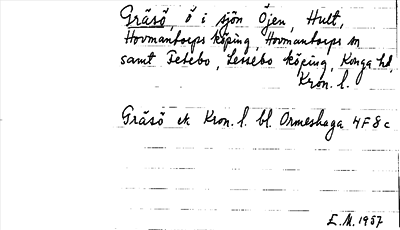 Gräsö, ö i sjön Öjen, Hult,
Hovmantorps köping, Hovmantorps sn
samt Tesebo, Lessebo köping, Konga hd,
Kron. l.
Gräsö ek Kron. l. bl. Ormeshaga 4F8c
E.M. 1957